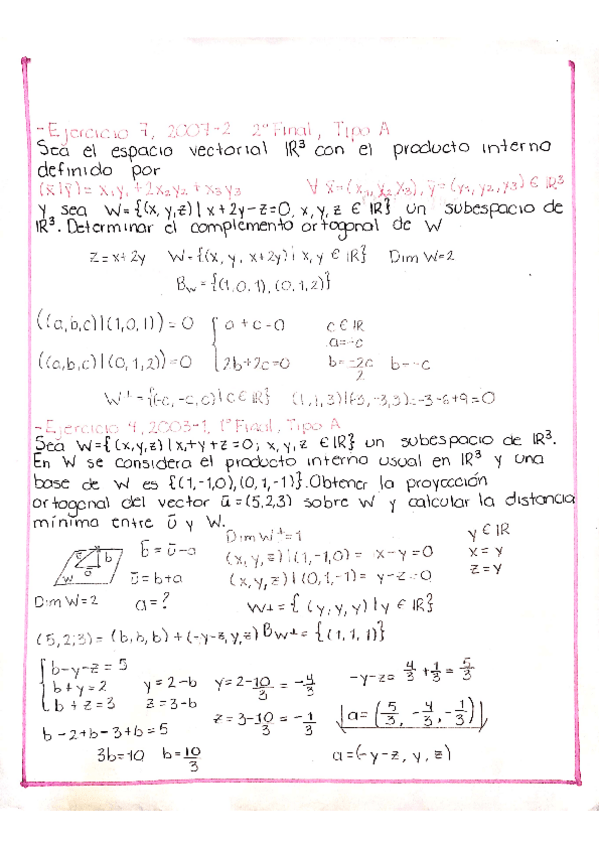 -Ejercicio 7, 2007-2 2º Final, Tipo A
Sea el espacio vectorial IR³ con el producto interno
definido por
(x̄|ȳ)= x₁y₁+2x₂y₂+x₃y₃ ∀ x̄=(x₁,x₂,x₃), ȳ=(y₁,y₂,y₃) ∈ IR³
y sea W={(x,y,z)|x+2y-z=0, x,y,z ∈ IR} un subespacio de
IR³. Determinar el complemento ortogonal de W
z=x+2y W={(x,y,x+2y)| x,y ∈ IR} Dim W=2
Bw={(1,0,1),(0,1,2)}
((a,b,c)|(1,0,1))=0 { a+c=0 c∈IR
a=-c
((a,b,c)|(0,1,2))=0 2b+2c=0 b=-2c/2 b=-c
W⊥={(-c,-c,c)|c∈IR} (1,1,3)|(-3,-3,3)=-3-6+9=0
-Ejercicio 4, 2003-1, 1º Final, Tipo A
Sea W={(x,y,z)|x+y+z=0; x,y,z ∈IR} un subespacio de IR³.
En W se considera el producto interno usual en IR³ y una
base de W es {(1,-1,0),(0,1,-1)}. Obtener la proyección
ortogonal del vector ū=(5,2,3) sobre W y calcular la distancia
mínima entre ū y W.
Dim W⊥=1 y∈IR
b̄=ū-a (x,y,z)|(1,-1,0)= x-y=0 x=y
ū=b+a (x,y,z)|(0,1,-1)= y-z=0 z=y
Dim W=2 a=? W⊥={(y,y,y)|y∈IR}
(5,2,3)=(b,b,b)+(-y-z,y,z) Bw⊥={(1,1,1)}
{ b-y-z=5
b+y=2 y=2-b y=2-10/3=-4/3 -y-z=4/3+1/3=5/3
b+z=3 z=3-b z=3-10/3=-1/3 a=(5/3,-4/3,-1/3)
b-2+b-3+b=5
3b=10 b=10/3 a=(-y-z,y,z)